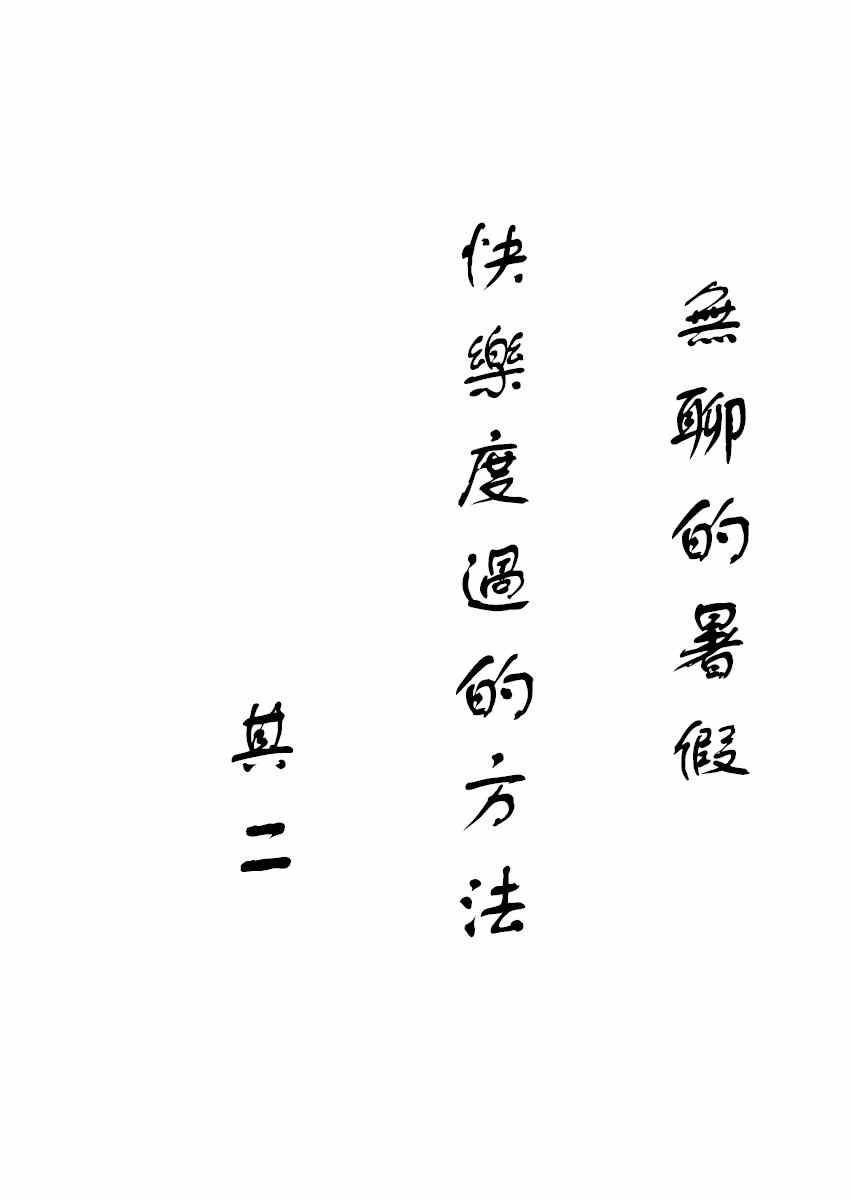 無聊的暑假
快樂度過的方法
其二